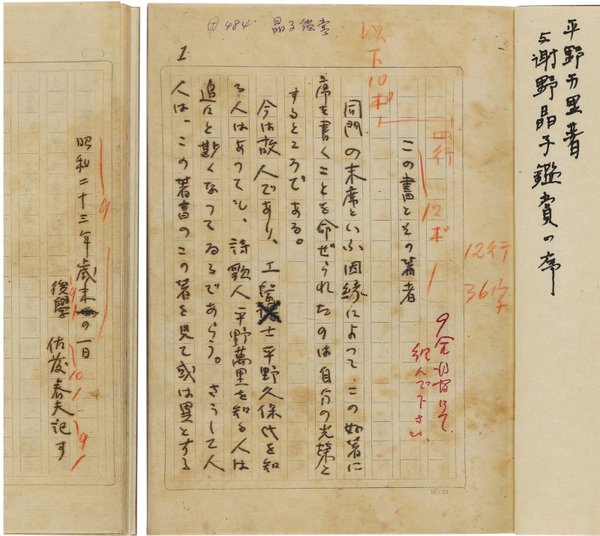 平野万里著
与謝野晶子鑑賞の序
P484 晶子鑑賞
1
以下10ポ
四行
12ポ
12行
36字
9全部皆にて
組んで下さい
この書とその著者
同門の末席といふ因縁によつて、この好著に
序を書くことを命ぜられたのは自分の光栄と
するところである。
今は故人であり、工学士平野久保氏を知
る人はあつても、詩歌人平野萬里を知る人は
追々と尠くなつてゐるであらう。さうして人
人は、この著書のこの著を見て或は異とする
昭和二十三年歳末の一日
後學 佐藤春夫記す
9
10
9